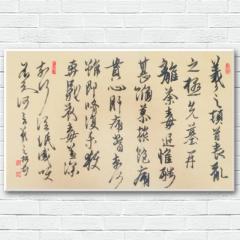 羲之頓首喪亂
之極先墓再
離荼毒追惟酷
甚號慕摧絕痛
貫心肝痛當奈何
雖即脩復未獲
奔馳哀毒益深
奈何臨紙感哽
不知何言羲之頓首